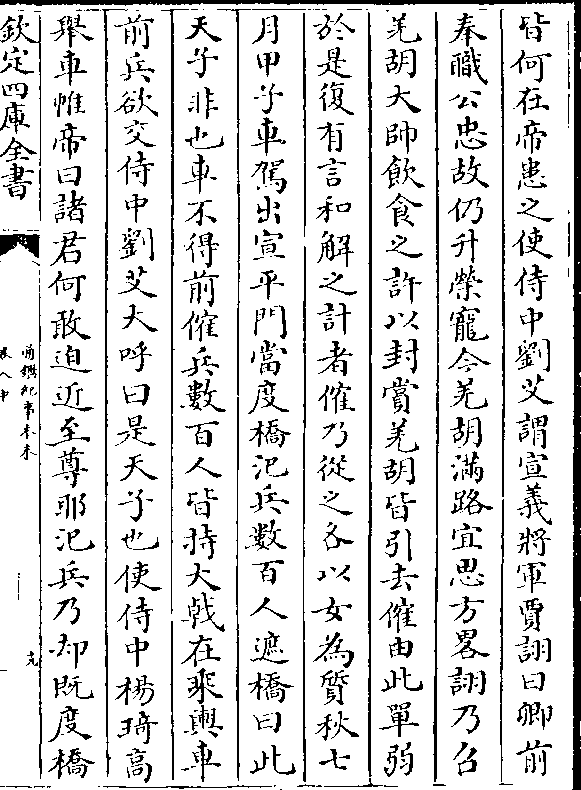 皆何在帝患之使侍中劉艾謂宣義將軍賈詡曰卿前
奉職公忠故仍升榮寵今羌胡滿路宜思方畧詡乃召
羌胡大帥飲食之許以封賞羌胡皆引去傕由此單弱
於是復有言和解之計者傕乃從之各以女為質秋七
月甲子車駕出宣平門當度橋汜兵數百人遮橋曰此
天子非也車不得前傕兵數百人皆持大戟在乘輿車
前兵欲交侍中劉艾大呼曰是天子也使侍中楊琦高
舉車帷帝曰諸君何敢迫近至尊耶汜兵乃却既度橋
欽定四庫全書
通鑑紀事本末
卷八中